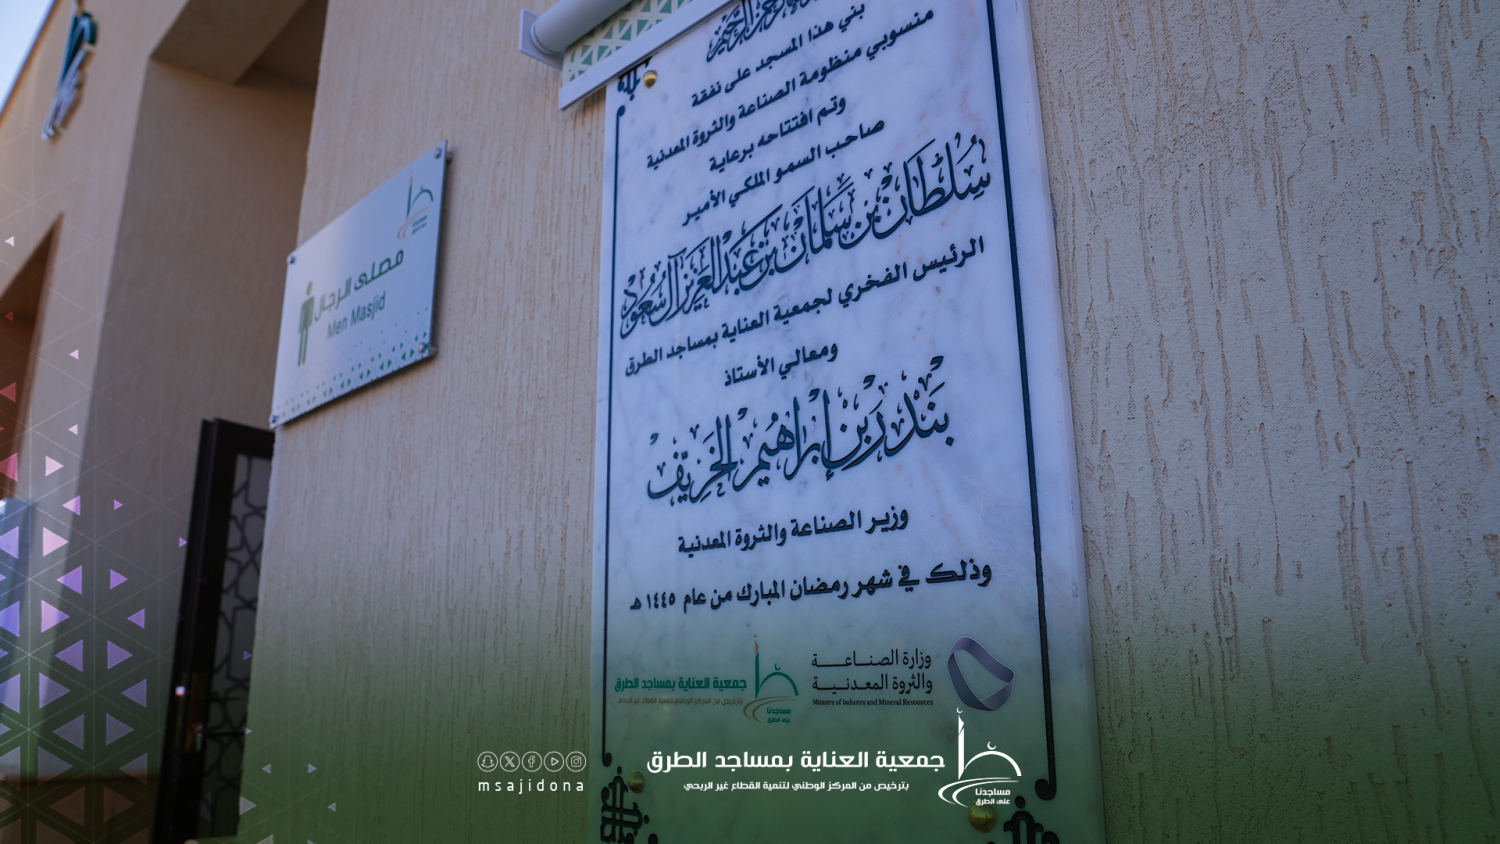 بسم الله الرحمن الرحيم
بني هذا المسجد على نفقة
منسوبي منظومة الصناعة والثروة المعدنية
وتم افتتاحه برعاية
صاحب السمو الملكي الأمير
سُلطان بن سَلمان بن عَبد العَزيز آل سُعود
الرئيس الفخري لجمعية العناية بمساجد الطرق
ومعالي الأستاذ
بَندر بن إبراهيم الخَريّف
وزير الصناعة والثروة المعدنية
وذلك في شهر رمضان المبارك من عام ١٤٤٥ هـ
وزارة الصناعة
والثروة المعدنية
Ministry of Industry and Mineral Resources
جمعية العناية بمساجد الطرق
بترخيص من المركز الوطني لتنمية القطاع غير الربحي
مساجدنا
على الطرق
مصلى الرجال
Men Masjid
جمعية العناية بمساجد الطرق
بترخيص من المركز الوطني لتنمية القطاع غير الربحي
مساجدنا
على الطرق
msajidona